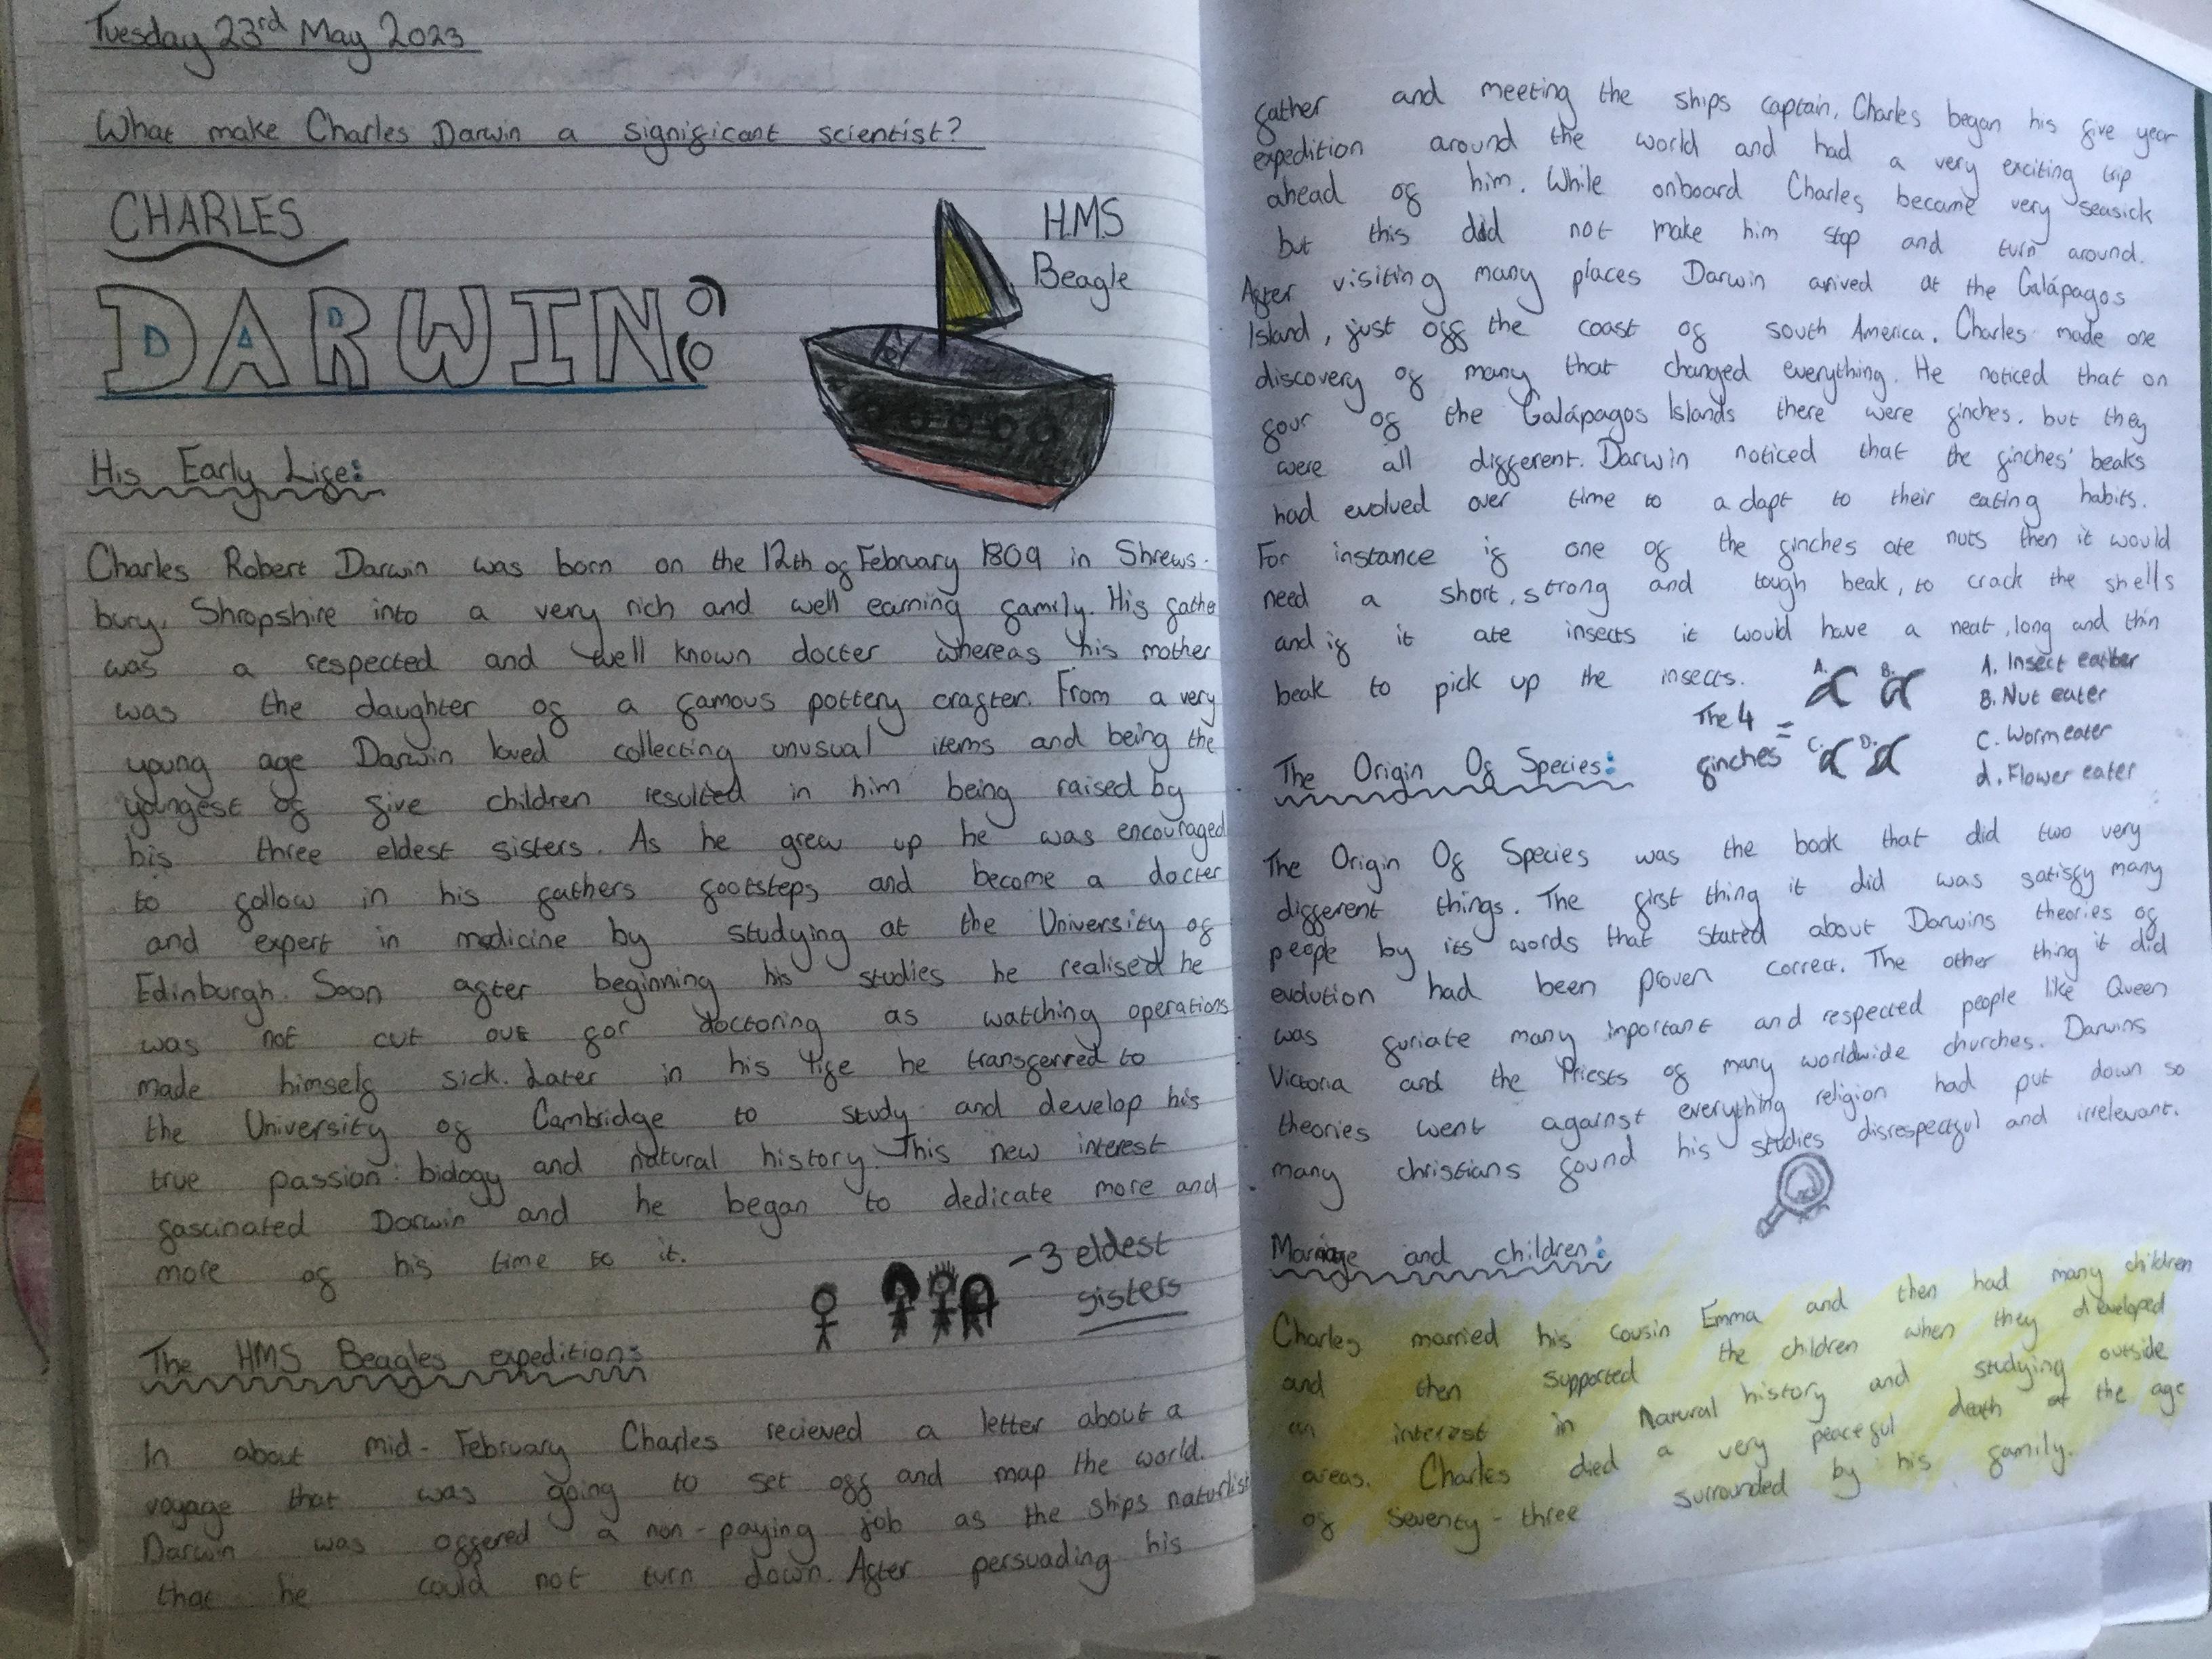 Tuesday 23rd May 2023
What make Charles Darwin a significant scientist?
CHARLES
DARWIN:
D A D
H.M.S
Beagle
His Early Life:
Charles Robert Darwin was born on the 12th of February 1809 in Shrews-
bury, Shropshire into a very rich and well earning family. His fathe
was a respected and well known docter whereas his mother
was the daughter of a famous pottery crafter. From a very
young age Darwin loved collecting unusual items and being the
youngest of five children resulted in him being raised by
his three eldest sisters. As he grew up he was encouraged
to follow in his fathers footsteps and become a docter
and expert in medicine by studying at the University of
Edinburgh. Soon after beginning his studies he realised he
was not cut out for doctoring as watching operations
made himself sick. Later in his life he transferred to
the University of Cambridge to study and develop his
true passion: biology and natural history. This new interest
fascinated Darwin and he began to dedicate more and
more of his time to it.
- 3 eldest
sisters
The HMS Beagles expedition:
In about mid-February Charles recieved a letter about a
voyage that was going to set off and map the world.
Darwin was offered a non-paying job as the ships naturlist
that he could not turn down. After persuading his
father and meeting the ships captain, Charles began his five year
expedition around the world and had a very exciting trip
ahead of him. While onboard Charles became very seasick
but this did not make him stop and turn around.
After visiting many places Darwin arived at the Galápagos
Island, just off the coast of south America. Charles made one
discovery of many that changed everything. He noticed that on
four of the Galápagos Islands there were finches. but they
were all different. Darwin noticed that the finches' beaks
had evolved over time to adapt to their eating habits.
For instance if one of the finches ate nuts then it would
need a short, strong and tough beak, to crack the shells
and if it ate insects it would have a neat, long and thin
beak to pick up the insects.
The 4
finches =
A. B.
C. D.
A. Insect eater
B. Nut eater
C. Worm eater
d. Flower eater
The Origin Of Species:
The Origin Of Species was the book that did two very
different things. The first thing it did was satisfy many
people by its words that stated about Darwins theories of
evolution had been proven correct. The other thing it did
was furiate many important and respected people like Queen
Victoria and the Priests of many worldwide churches. Darwins
theories went against everything religion had put down so
many christians found his studies disrespectful and irrelevant.
Marriage and children:
Charles married his cousin Emma and then had many children
and then supported the children when they developed
an interest in Natural history and studying outside
areas. Charles died a very peaceful death at the age
of seventy-three surrounded by his family.